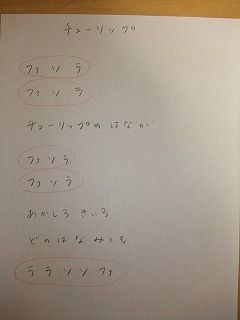 チューリップ
ファ ソ ラ
ファ ソ ラ
チューリップの はなが
ファ ソ ラ
ファ ソ ラ
あかしろ きいろ
どの はな みても
ララソソファ